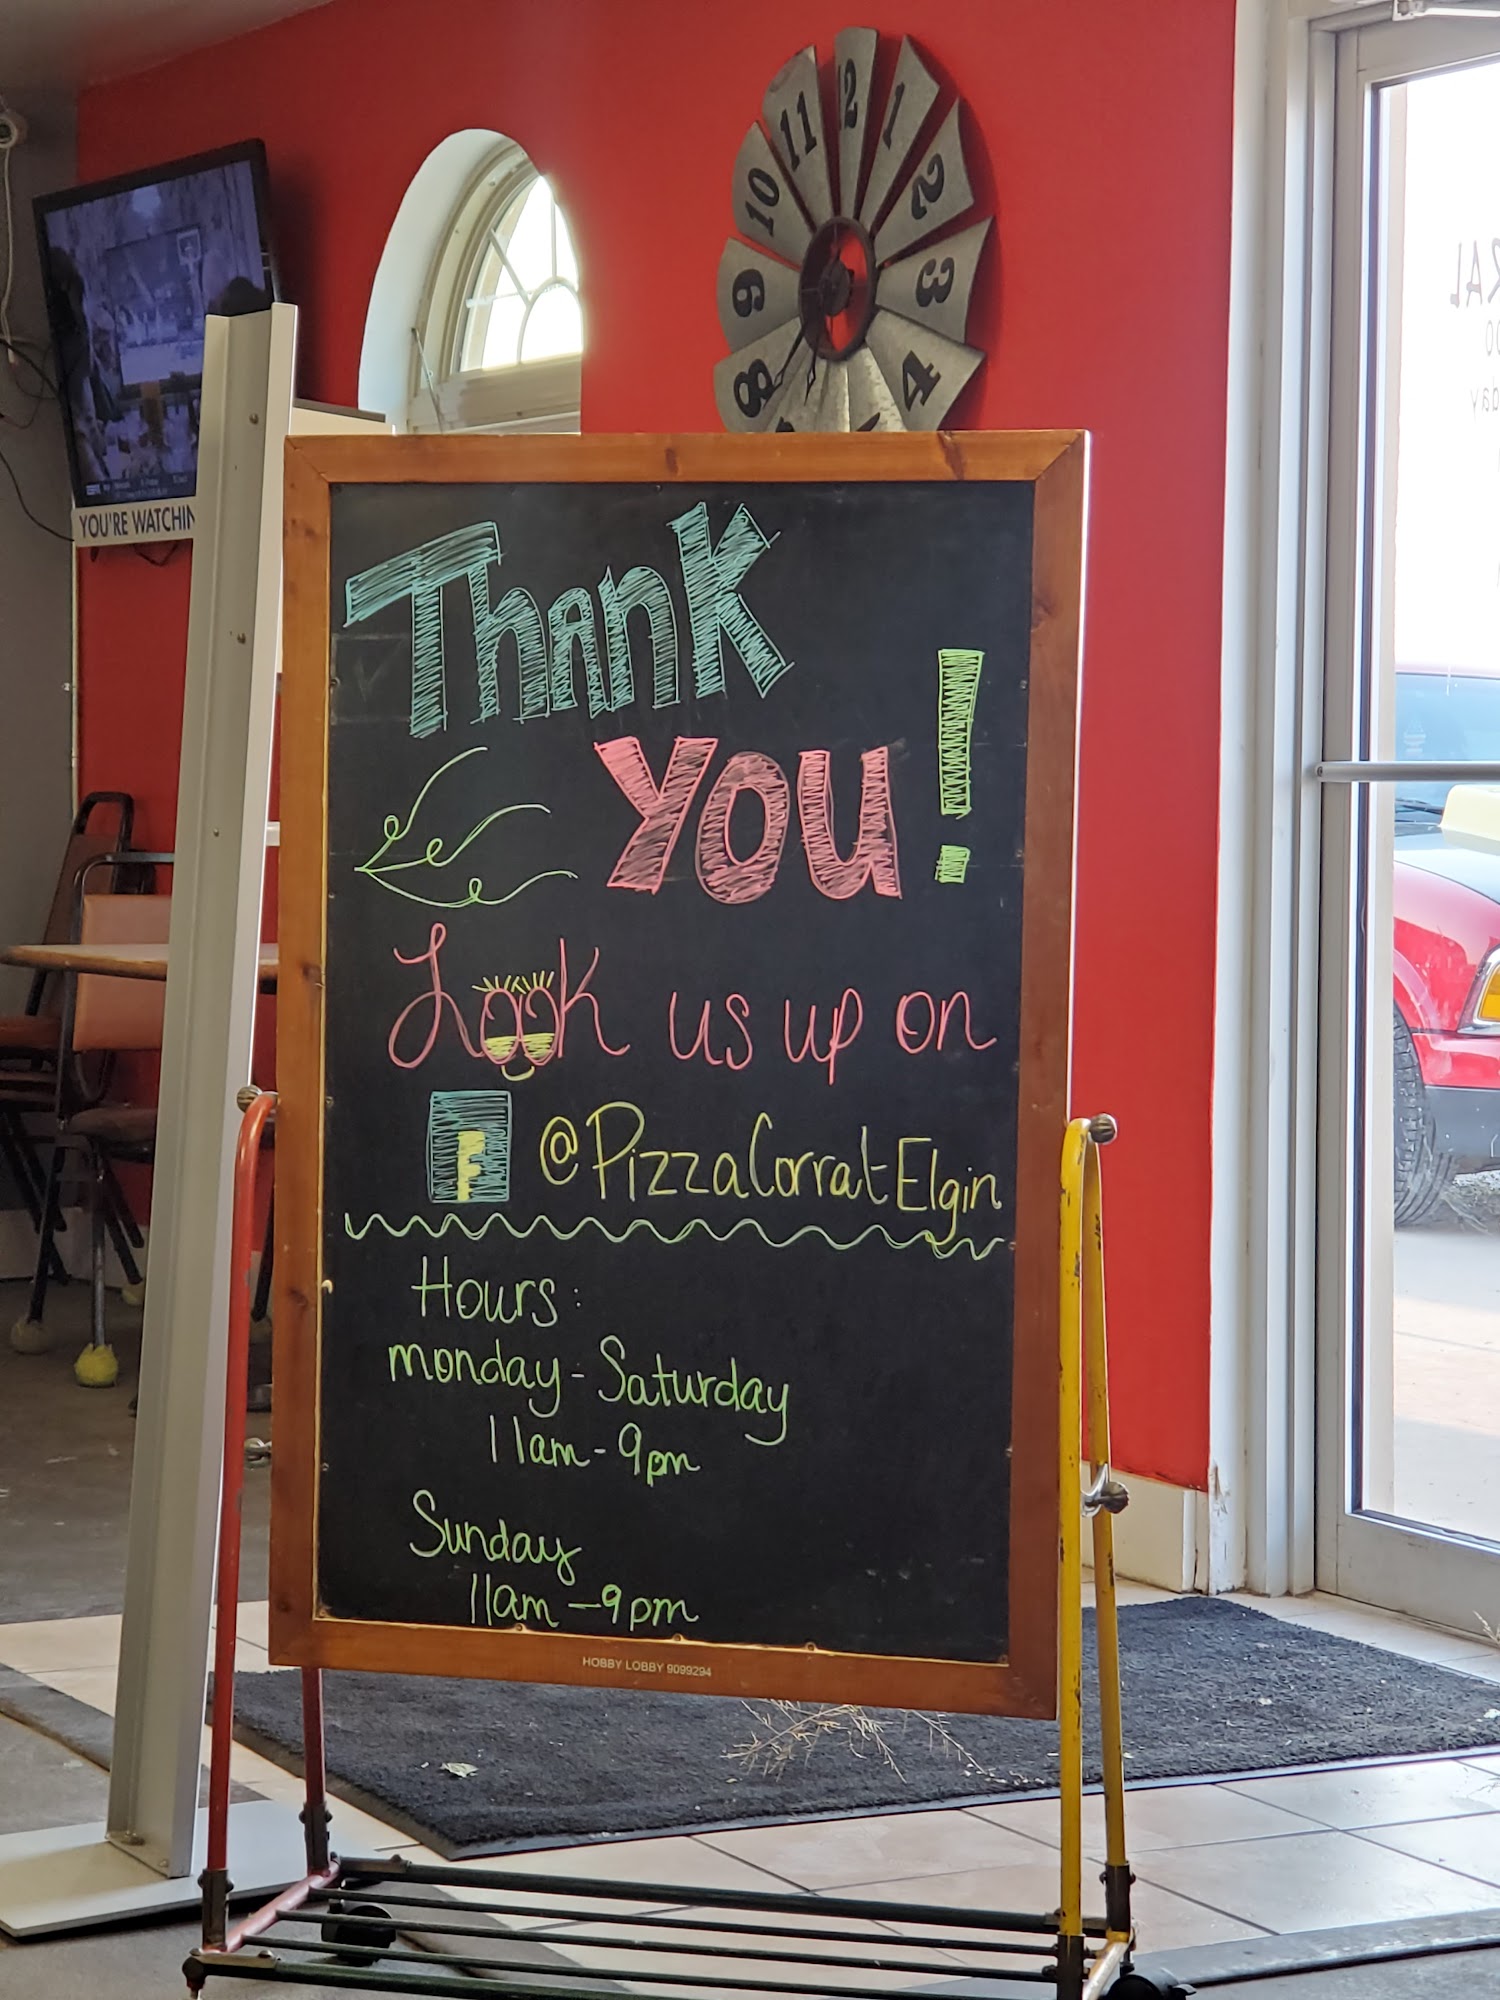 11
12
1
10
2
9
3
8
4
ESPN
YOU'RE WATCHIN
RAL
00
day
Thank
You!
Look us up on
F @PizzaCorralElgin
Hours:
monday - Saturday
11am - 9pm
Sunday
11am - 9pm
HOBBY LOBBY 9099294